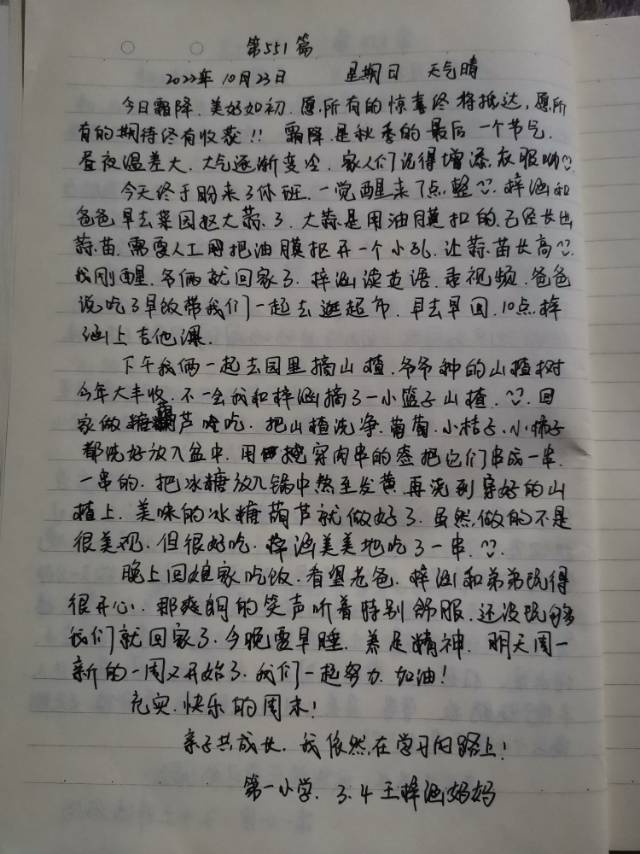 第551篇
2022年10月23日 星期日 天气晴
今日霜降.美好如初.愿.所有的惊喜终将抵达,愿所
有的期待终有收获!! 霜降.是秋季的最后一个节气.
昼夜温差大.大气逐渐变冷.家人们记得增添衣服呦
今天终于盼来了休班.一觉醒来7点整.梓涵和
爸爸早去菜园抠大蒜.了.大蒜是用油膜扣的.已经长出
蒜.苗.需要人工用把油膜抠开一个小孔.让蒜.苗长高
我刚醒.爷俩就回家了.梓涵读英语.录视频.爸爸
说吃了早饭带我们一起去逛超市.早去早回.10点.梓
涵上吉他课.
下午我俩一起去园里摘山楂.爷爷种的山楂树
今年大丰收.不一会我和梓涵摘了一小篮子山楂.回
家做糖葫芦吃.把山楂洗净.葡萄.小桔子.小柿子
都洗好放入盆中.用穿肉串的签把它们串成一串.
一串的.把冰糖放入锅中熬至发黄再浇到穿好的山
楂上.美味的冰糖葫芦就做好了.虽然.做的不是
很美观.但很好吃.梓涵美美地吃了一串.
晚上回娘家吃饭.看望老爸.梓涵和弟弟玩得
很开心.那爽朗的笑声听着特别舒服.还没玩够
我们就回家了.今晚要早睡.养足精神.明天周一
新的一周又开始了.我们一起努力.加油!
充实.快乐的周末!
亲子共成长.我依然在学习的路上!
第一小学.3.4王梓涵妈妈